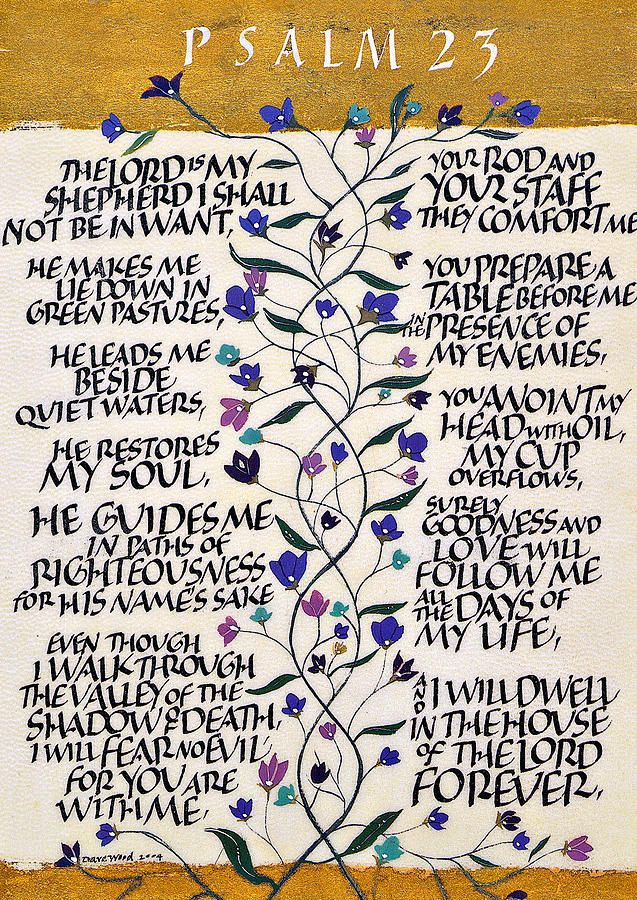 PSALM 23
THE LORD IS MY
SHEPHERD I SHALL
NOT BE IN WANT,
HE MAKES ME
LIE DOWN IN
GREEN PASTURES,
HE LEADS ME
BESIDE
QUIET WATERS,
HE RESTORES
MY SOUL,
HE GUIDES ME
IN PATHS OF
RIGHTEOUSNESS
FOR HIS NAME'S SAKE
EVEN THOUGH
I WALK THROUGH
THE VALLEY OF THE
SHADOW OF DEATH,
I WILL FEAR NO EVIL
FOR YOU ARE
WITH ME,
YOUR ROD AND
YOUR STAFF
THEY COMFORT ME
YOU PREPARE A
TABLE BEFORE ME
IN THE PRESENCE OF
MY ENEMIES,
YOU ANOINT MY
HEAD WITH OIL,
MY CUP
OVERFLOWS,
SURELY
GOODNESS AND
LOVE WILL
FOLLOW ME
ALL THE DAYS OF
MY LIFE,
AND I WILL DWELL
IN THE HOUSE
OF THE LORD
FOREVER,
Dave Wood 2004